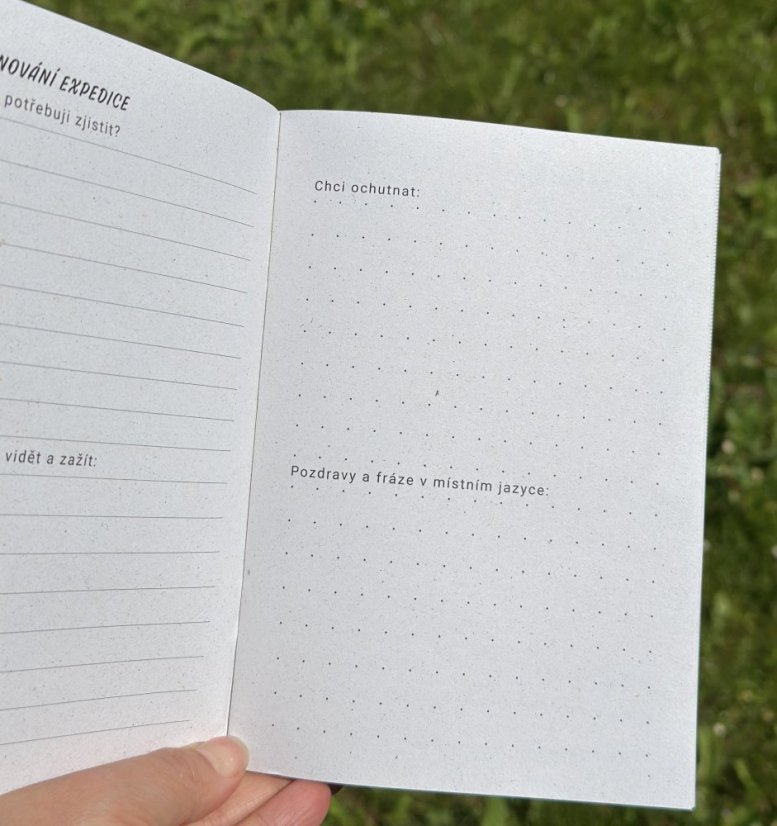 NOVÁNÍ EXPEDICE
potřebuji zjistit?
vidět a zažít:
Chci ochutnat:
Pozdravy a fráze v místním jazyce: